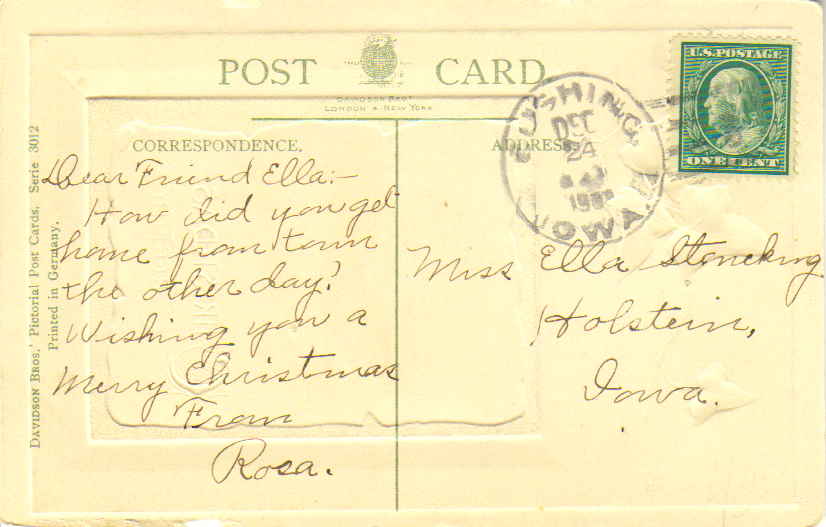 POST CARD
DAVIDSON BROS.
LONDON & NEW YORK
DAVIDSON BROS.' Pictorial Post Cards, Serie 3012
Printed in Germany.
CORRESPONDENCE.
Dear Friend Ella:-
How did you get
home from town
the other day?
Wishing you a
Merry Christmas
From
Rosa.
ADDRESS.
CUSHING,
DEC
24
IOWA
U.S. POSTAGE
ONE CENT
Miss Ella Stoneking
Holstein,
Iowa.